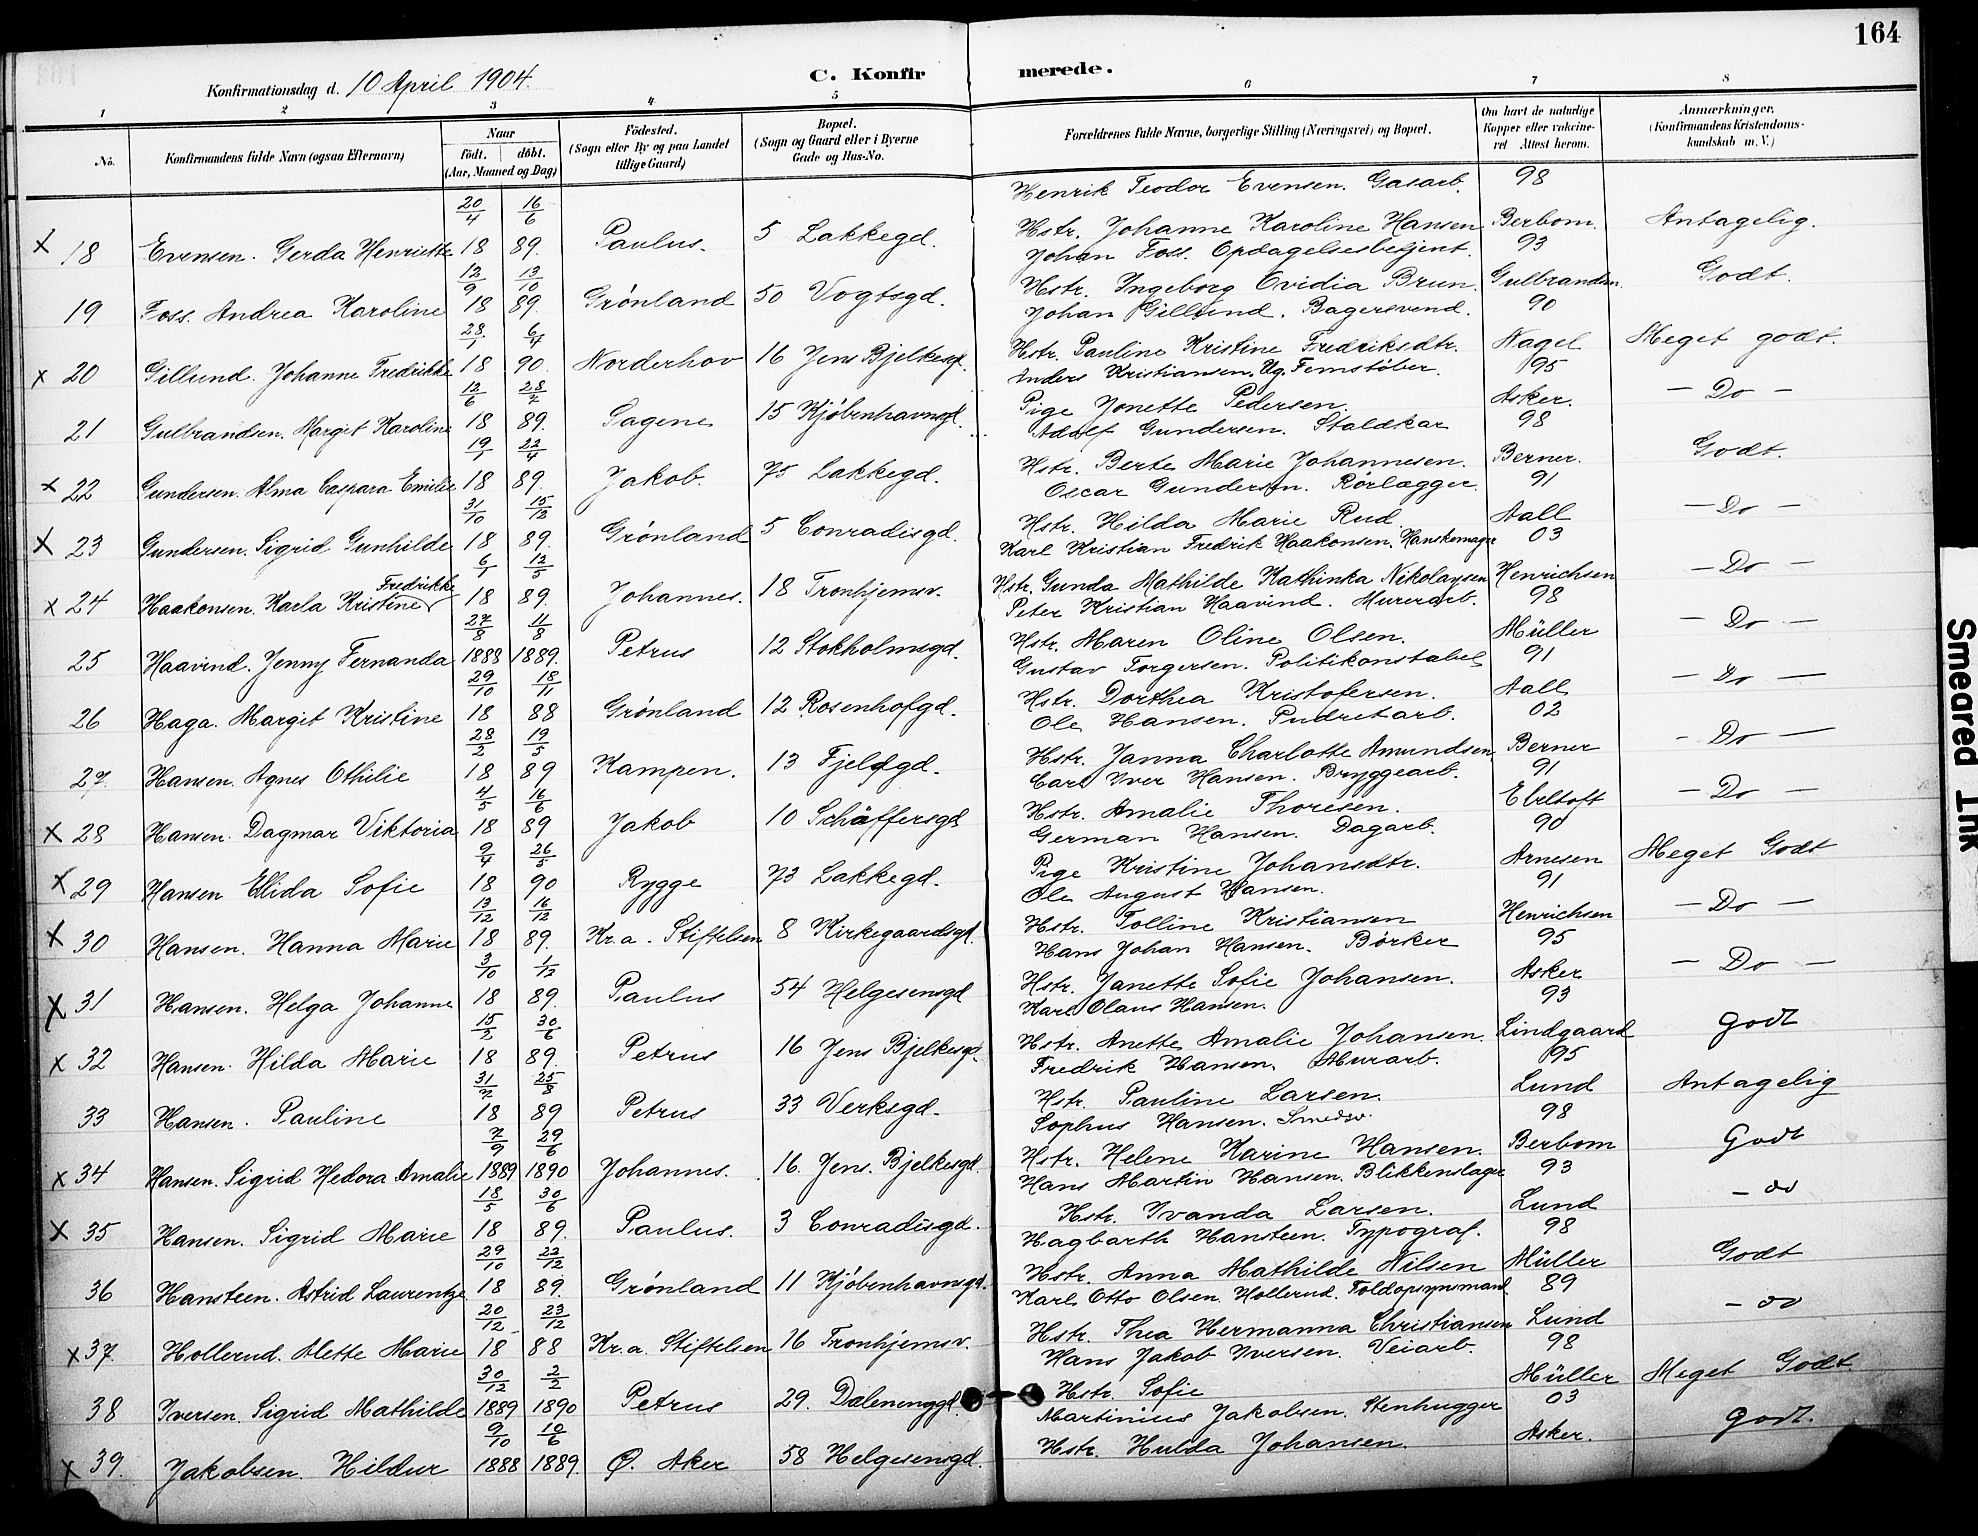 164
Konfirmationsdag d. 10 April 1904.
C. Konfirmerede.
1 2 3 4 5 6 7 8
No. | Konfirmandens fulde Navn (ogsaa Efternavn) | Naar født. døbt. (Aar, Maaned og Dag) | Fødested. (Sogn eller By og paa Landet tillige Gaard) | Bopæl. (Sogn og Gaard eller i Byerne Gade og Hus-No. | Forældrenes fulde Navne, borgerlige Stilling (Næringsvei) og Bopæl. | Om havt de naturlige Kopper eller vakcineret Attest herom. | Anmærkninger. (Konfirmandens Kristendomskundskab m. V.)
20/4 16/6 Henrik Teodor Evensen. Gasarb. 98
x 18 Evensen. Gerda Henriette 18 89. Paulus. 5 Lakkegd. Hstr. Johanne Karoline Hansen Berbom. Antagelig.
12/9 13/10 Johan Foss. Opdagelsesbetjent. 93
19 Foss. Andrea Karoline 18 89. Grønland 50 Vogtsgd. Hstr. Ingeborg Ovidia Brun. Gulbrandsen. Godt.
28/1 6/4 Johan Gillund. Bagersvend. 90
x 20 Gillund. Johanne Fredrikke 18 90. Norderhov 16 Jens Bjelkesgd. Hstr. Pauline Kristine Fredriksdtr. Nagel Meget godt.
12/6 28/7 Anders Kristiansen. Ug. Femstøber. 95
21 Gulbrandsen. Margit Karoline 18 89. Sagene 15 Kjøbenhavnsgd. Pige Jonette Pedersen. Asker. - Do -
19/1 22/4 Adolf Gundersen. Staldkar 98
x 22 Gundersen. Alma Caspara Emilie 18 89. Jakob 75 Lakkegd. Hstr. Berte Marie Johannesen. Berner. Godt.
31/10 15/12 Oscar Gundersen. Rørlægger. 91
x 23 Gundersen. Sigrid Gunhilde 18 89. Grønland 5 Conradisgd. Hstr. Hilda Marie Rud. Aall - Do -
6/1 12/5 Karl Kristian Fredrik Haakonsen. Hanskemager 03
x 24 Haakonsen. Karla Kristine Fredrikke 18 89. Johannes. 18 Tronhjemsv. Hstr. Gunda Mathilde Kathinka Nikolaysen Henrichsen - Do -
27/8 11/8 Peter Kristian Haavind. Murerarb. 98
25 Haavind. Jenny Fernanda 1888 1889. Petrus 12 Stokholmsgd. Hstr. Maren Oline Olsen. Müller - Do -
29/10 18/11 Gustav Torgersen. Politikonstabel 91
26 Haga. Margit Kristine 18 88 Grønland 12 Rosenhofgd. Hstr. Dorthea Kristofersen. Aall - Do -
28/2 19/5 Ole Hansen. Pudretarb. 02
27. Hansen. Agnes Othilie 18 89 Kampen. 13 Fjeldgd. Hstr. Janna Charlotte Amundsen Berner - Do -
4/5 16/6 Carl Iver Hansen. Bryggearb. 91
x 28 Hansen. Dagmar Viktoria 18 89 Jakob 10 Schäffersgd Hstr. Amalie Thoresen. Ebeltoft - Do -
9/4 26/5 German Hansen. Dagarb. 90
x 29 Hansen Ellida Sofie 18 90 Rygge 73 Lakkegd. Pige Kristine Johansdtr. Arnesen Meget Godt
13/12 16/12 Ole August Hansen. 91
x 30 Hansen. Hanna Marie 18 89. Kr.a. Stiftelsen 8 Kirkegaardsgd. Hstr. Tolline Kristiansen Henrichsen - Do -
3/10 1/12 Hans Johan Hansen. Børker 95
x 31 Hansen. Helga Johanne 18 89. Paulus 54 Helgesensgd Hstr. Janette Sofie Johansen. Asker - Do -
15/2 30/6 Karl Olaus Hansen. 93
x 32 Hansen. Hilda Marie 18 89. Petrus 16 Jens Bjelkesgd. Hstr. Anette Amalie Johansen. Lindgaard Godt
31/7 25/8 Fredrik Hansen. Murarb. 95
33 Hansen. Pauline 18 89 Petrus 33 Verksgd. Hstr. Pauline Larsen. Lund Antagelig
7/9 29/6 Sophus Hansen. Smedsv. 98
x 34 Hansen. Sigrid Hedora Amalie 1889 1890 Johannes. 16. Jens. Bjelkesgd. Hstr. Helene Karine Hansen. Berbom Godt
18/5 30/6 Hans Martin Hansen. Blikkenslager 93
x 35 Hansen. Sigrid Marie 18 89. Paulus. 3 Conradisgd. Hstr. Ivanda Larsen. Lund - do
29/10 22/12 Hagbarth Hansteen. Typograf. 98
36 Hansteen. Astrid Laurentze 18 89. Grønland 11 Kjøbenhavnsgd. Hstr. Anna Mathilde Nilsen Müller Godt
20/12 23/12 Karl Otto Olsen Hollerud. Toldopsynsmand 89
x 37. Hollerud. Alette Marie 18 88 Kr.a. Stiftelsen 16 Tronhjemsv. Hstr. Thea Hermanna Christiansen Lund - do
30/12 2/2 Hans Jakob Iversen. Veiarb. 98
38 Iversen. Sigrid Mathilde 1889 1890 Petrus 29. Dælenenggd. Hstr. Sofie Müller Meget Godt
9/10 10/6 Martinius Jakobsen. Stenhugger 03
x 39. Jakobsen. Hildur 1888 1889. Ø. Aker 58 Helgesensgd. Hstr. Hulda Johansen. Asker. Godt.
Smeared Ink